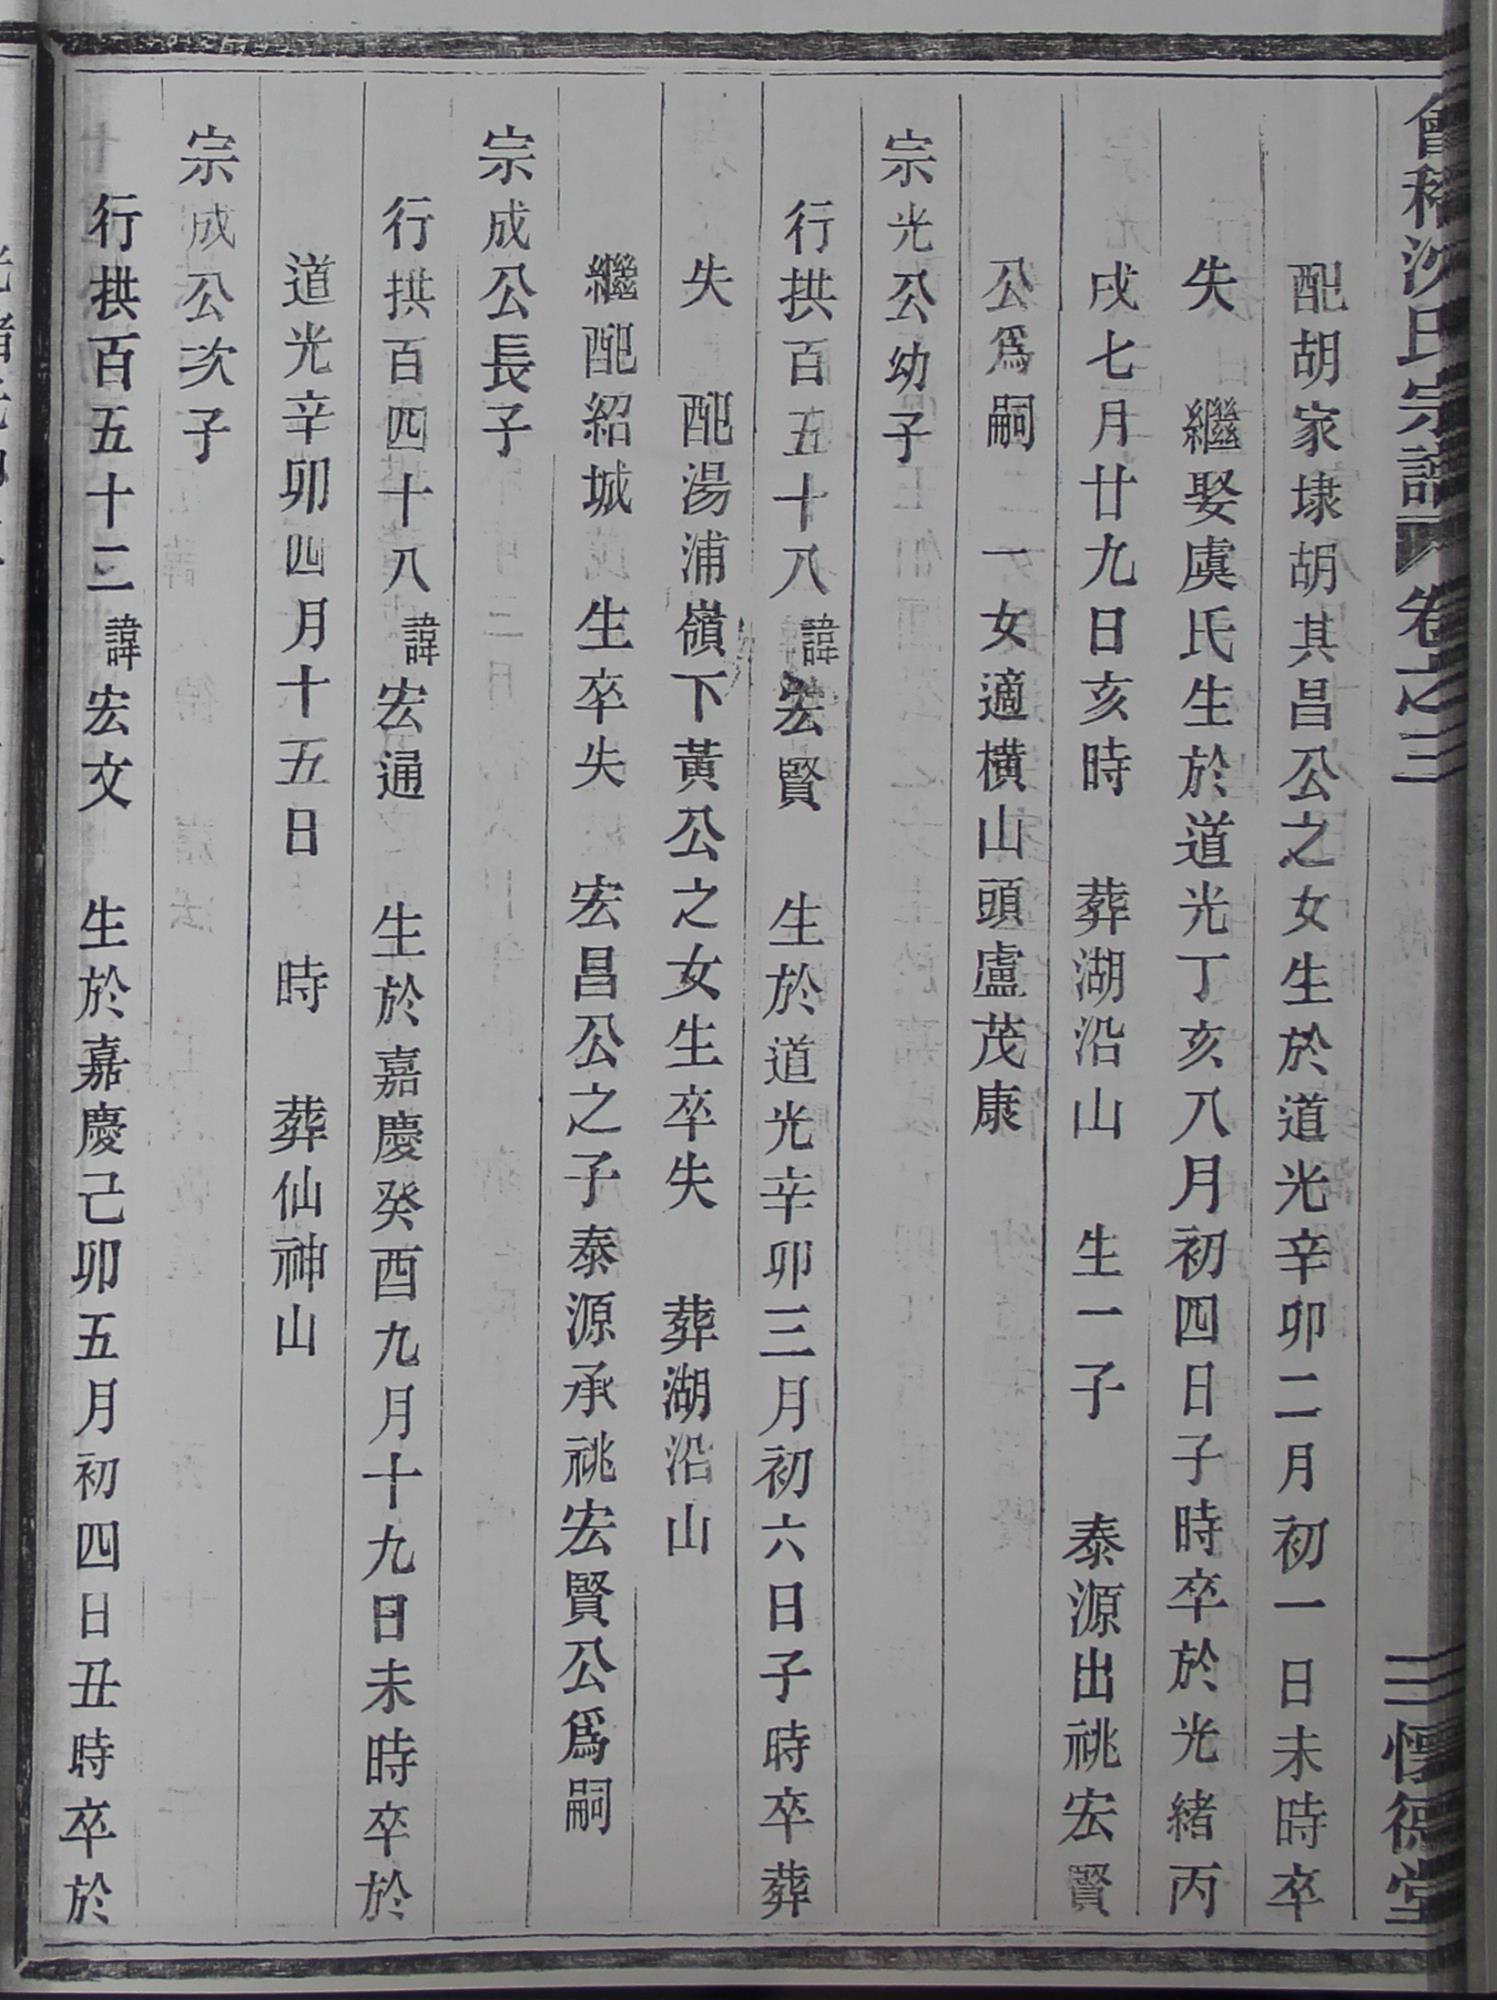 會稽沈氏宗譜 卷之三 三 德堂
配胡家埭胡其昌公之女生於道光辛卯二月初一日未時卒
失 繼娶虞氏生於道光丁亥八月初四日子時卒於光緒丙
戌七月廿九日亥時 葬湖沿山 生一子 泰源出祧宏賢
公爲嗣 一女適橫山頭盧茂康
宗光公幼子
行拱百五十八 諱宏賢 生於道光辛卯三月初六日子時卒葬
失 配湯浦嶺下黃公之女生卒失 葬湖沿山
繼配紹城 生卒失 宏昌公之子泰源承祧宏賢公爲嗣
宗成公長子
行拱百四十八 諱宏通 生於嘉慶癸酉九月十九日未時卒於
道光辛卯四月十五日 時 葬仙神山
宗成公次子
行拱百五十二 諱宏文 生於嘉慶己卯五月初四日丑時卒於